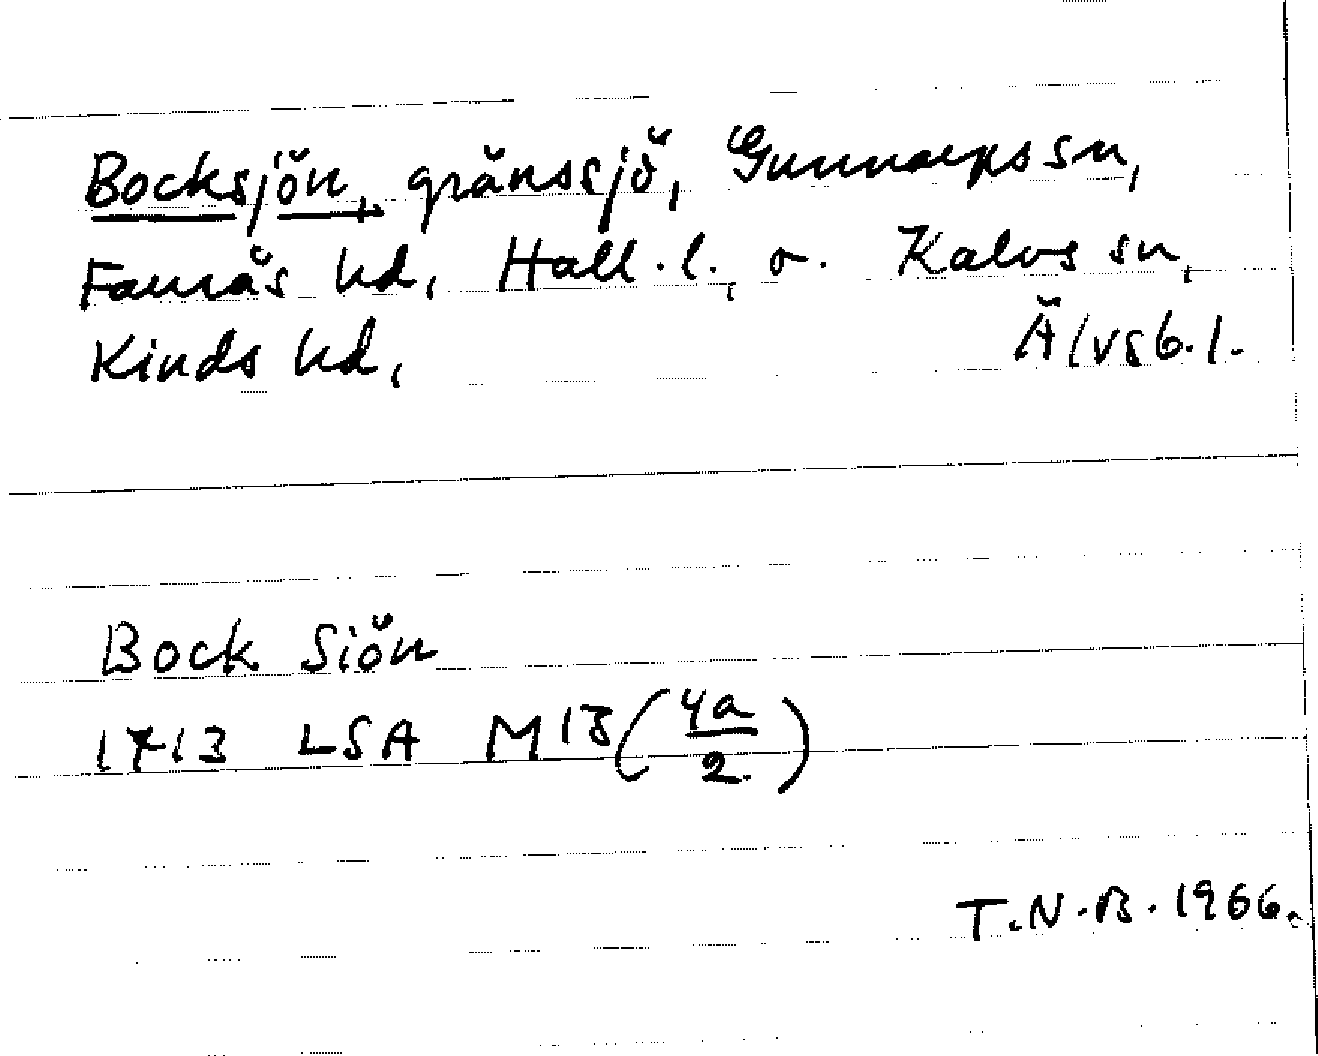 Bocksjön, gränssjö, Gunnarps sn,
Faurås hd, Hall. l., o. Kalvs sn,
Kinds hd, Älvsb. l.
Bock Siön
1713 LSA M13 (4a/2)
T.N.B. 1966.